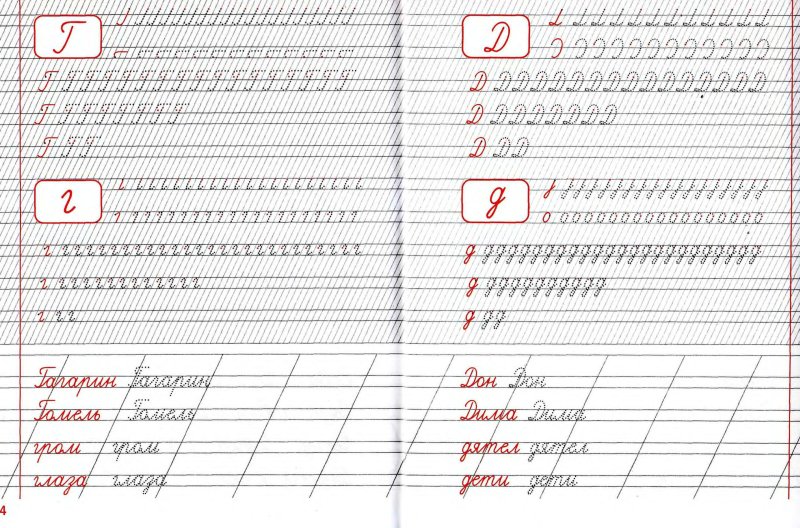 Г
Г Г Г Г Г Г Г Г Г Г Г Г Г Г Г Г Г
Г Г Г Г Г Г Г Г
Г Г Г
г
г г г г г г г г г г г г г г г г г г г г г г г г г г
г г г г г г г г г г г г г
г г г
Гагарин Гагарин
Гомель Гомель
гром гром
глаза глаза
4
Д
Д Д Д Д Д Д Д Д Д Д Д Д Д Д Д Д
Д Д Д Д Д Д Д Д
Д Д Д
д
д д д д д д д д д д д д д д д д д д д д д д д
д д д д д д д д д д д
д д д
Дон Дон
Дима Дима
дятел дятел
дети дети